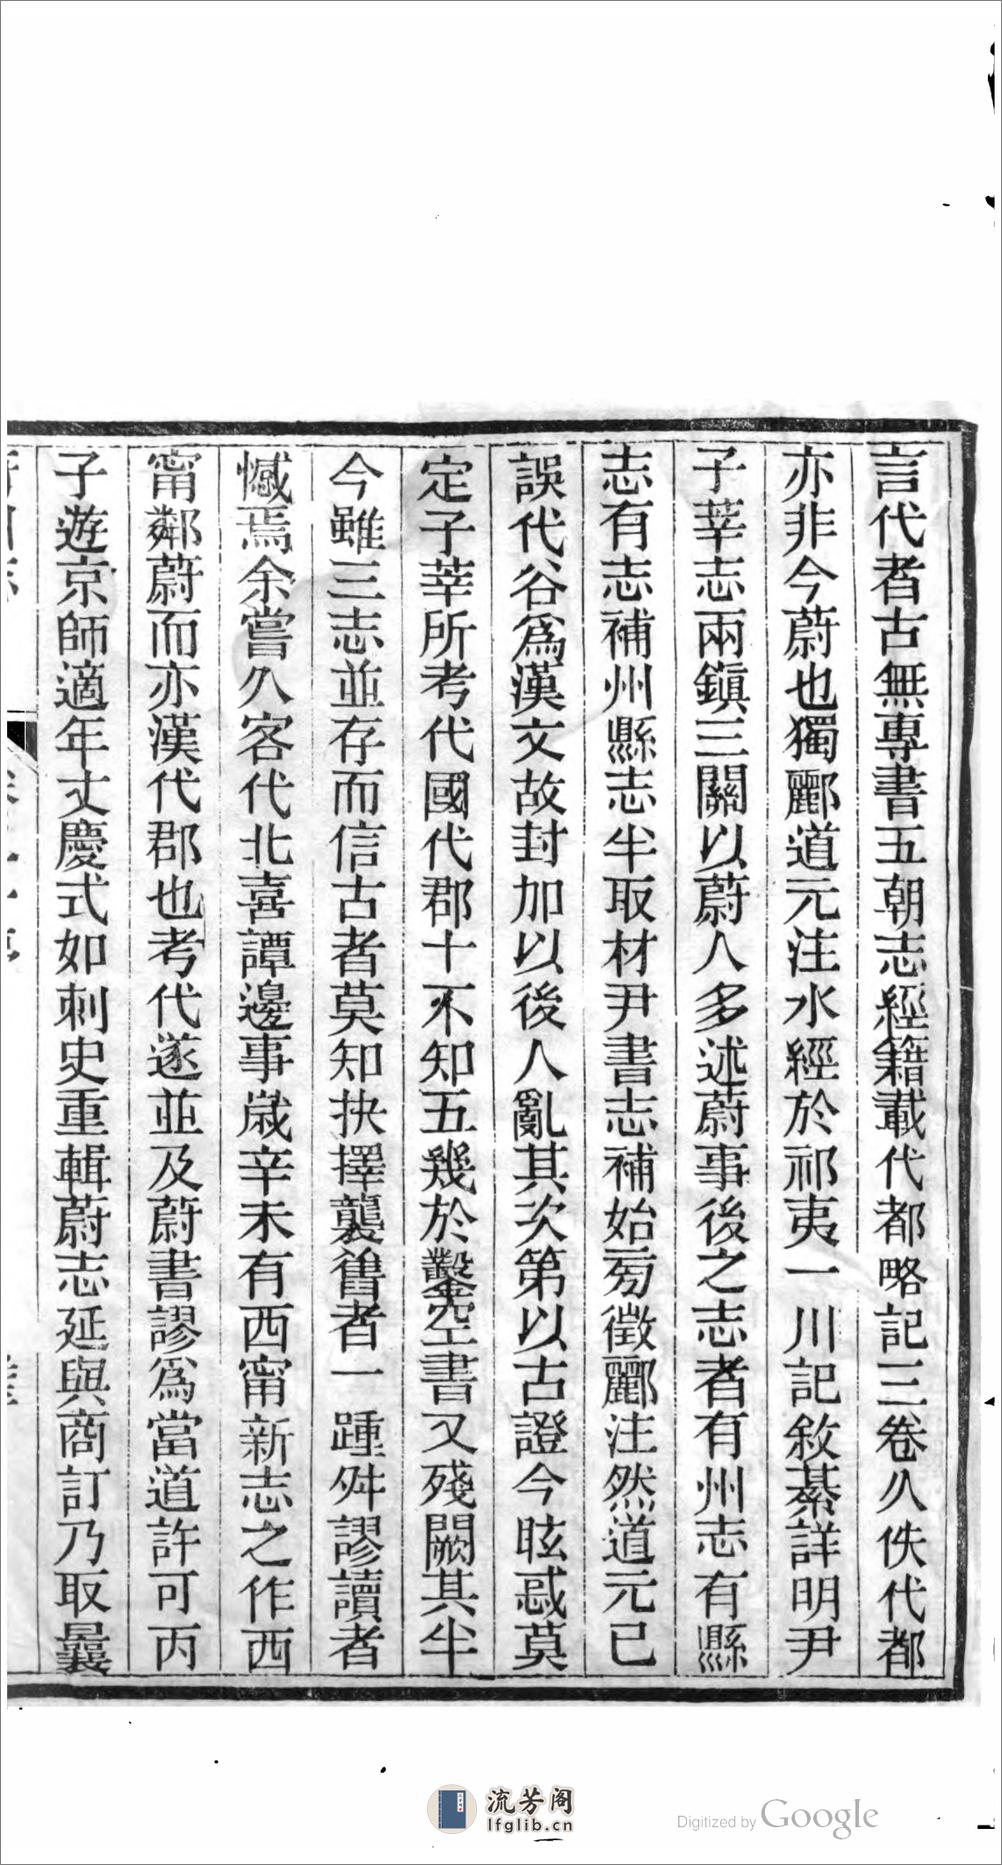 言代者古無專書五朝志經籍載代都略記三卷久佚代都
亦非今蔚也獨酈道元注水經於祁夷一川記敘綦詳明尹
子莘志兩鎭三關以蔚人多述蔚事後之志者有州志有縣
志有志補州縣志半取材尹書志補始㫄徵酈注然道元已
誤代谷爲漢文故封加以後人亂其次第以古證今眩惑莫
定子莘所考代國代郡十不知五幾於鑿空書又殘闕其半
今雖三志並存而信古者莫知抉擇襲舊者一踵舛謬讀者
憾焉余嘗久客代北喜譚邊事歲辛未有西甯新志之作西
甯鄰蔚而亦漢代郡也考代遂並及蔚書謬爲當道許可丙
子遊京師適年丈慶式如刺史重輯蔚志延與商訂乃取曩
流芳阁
lfglib.cn
Digitized by Google